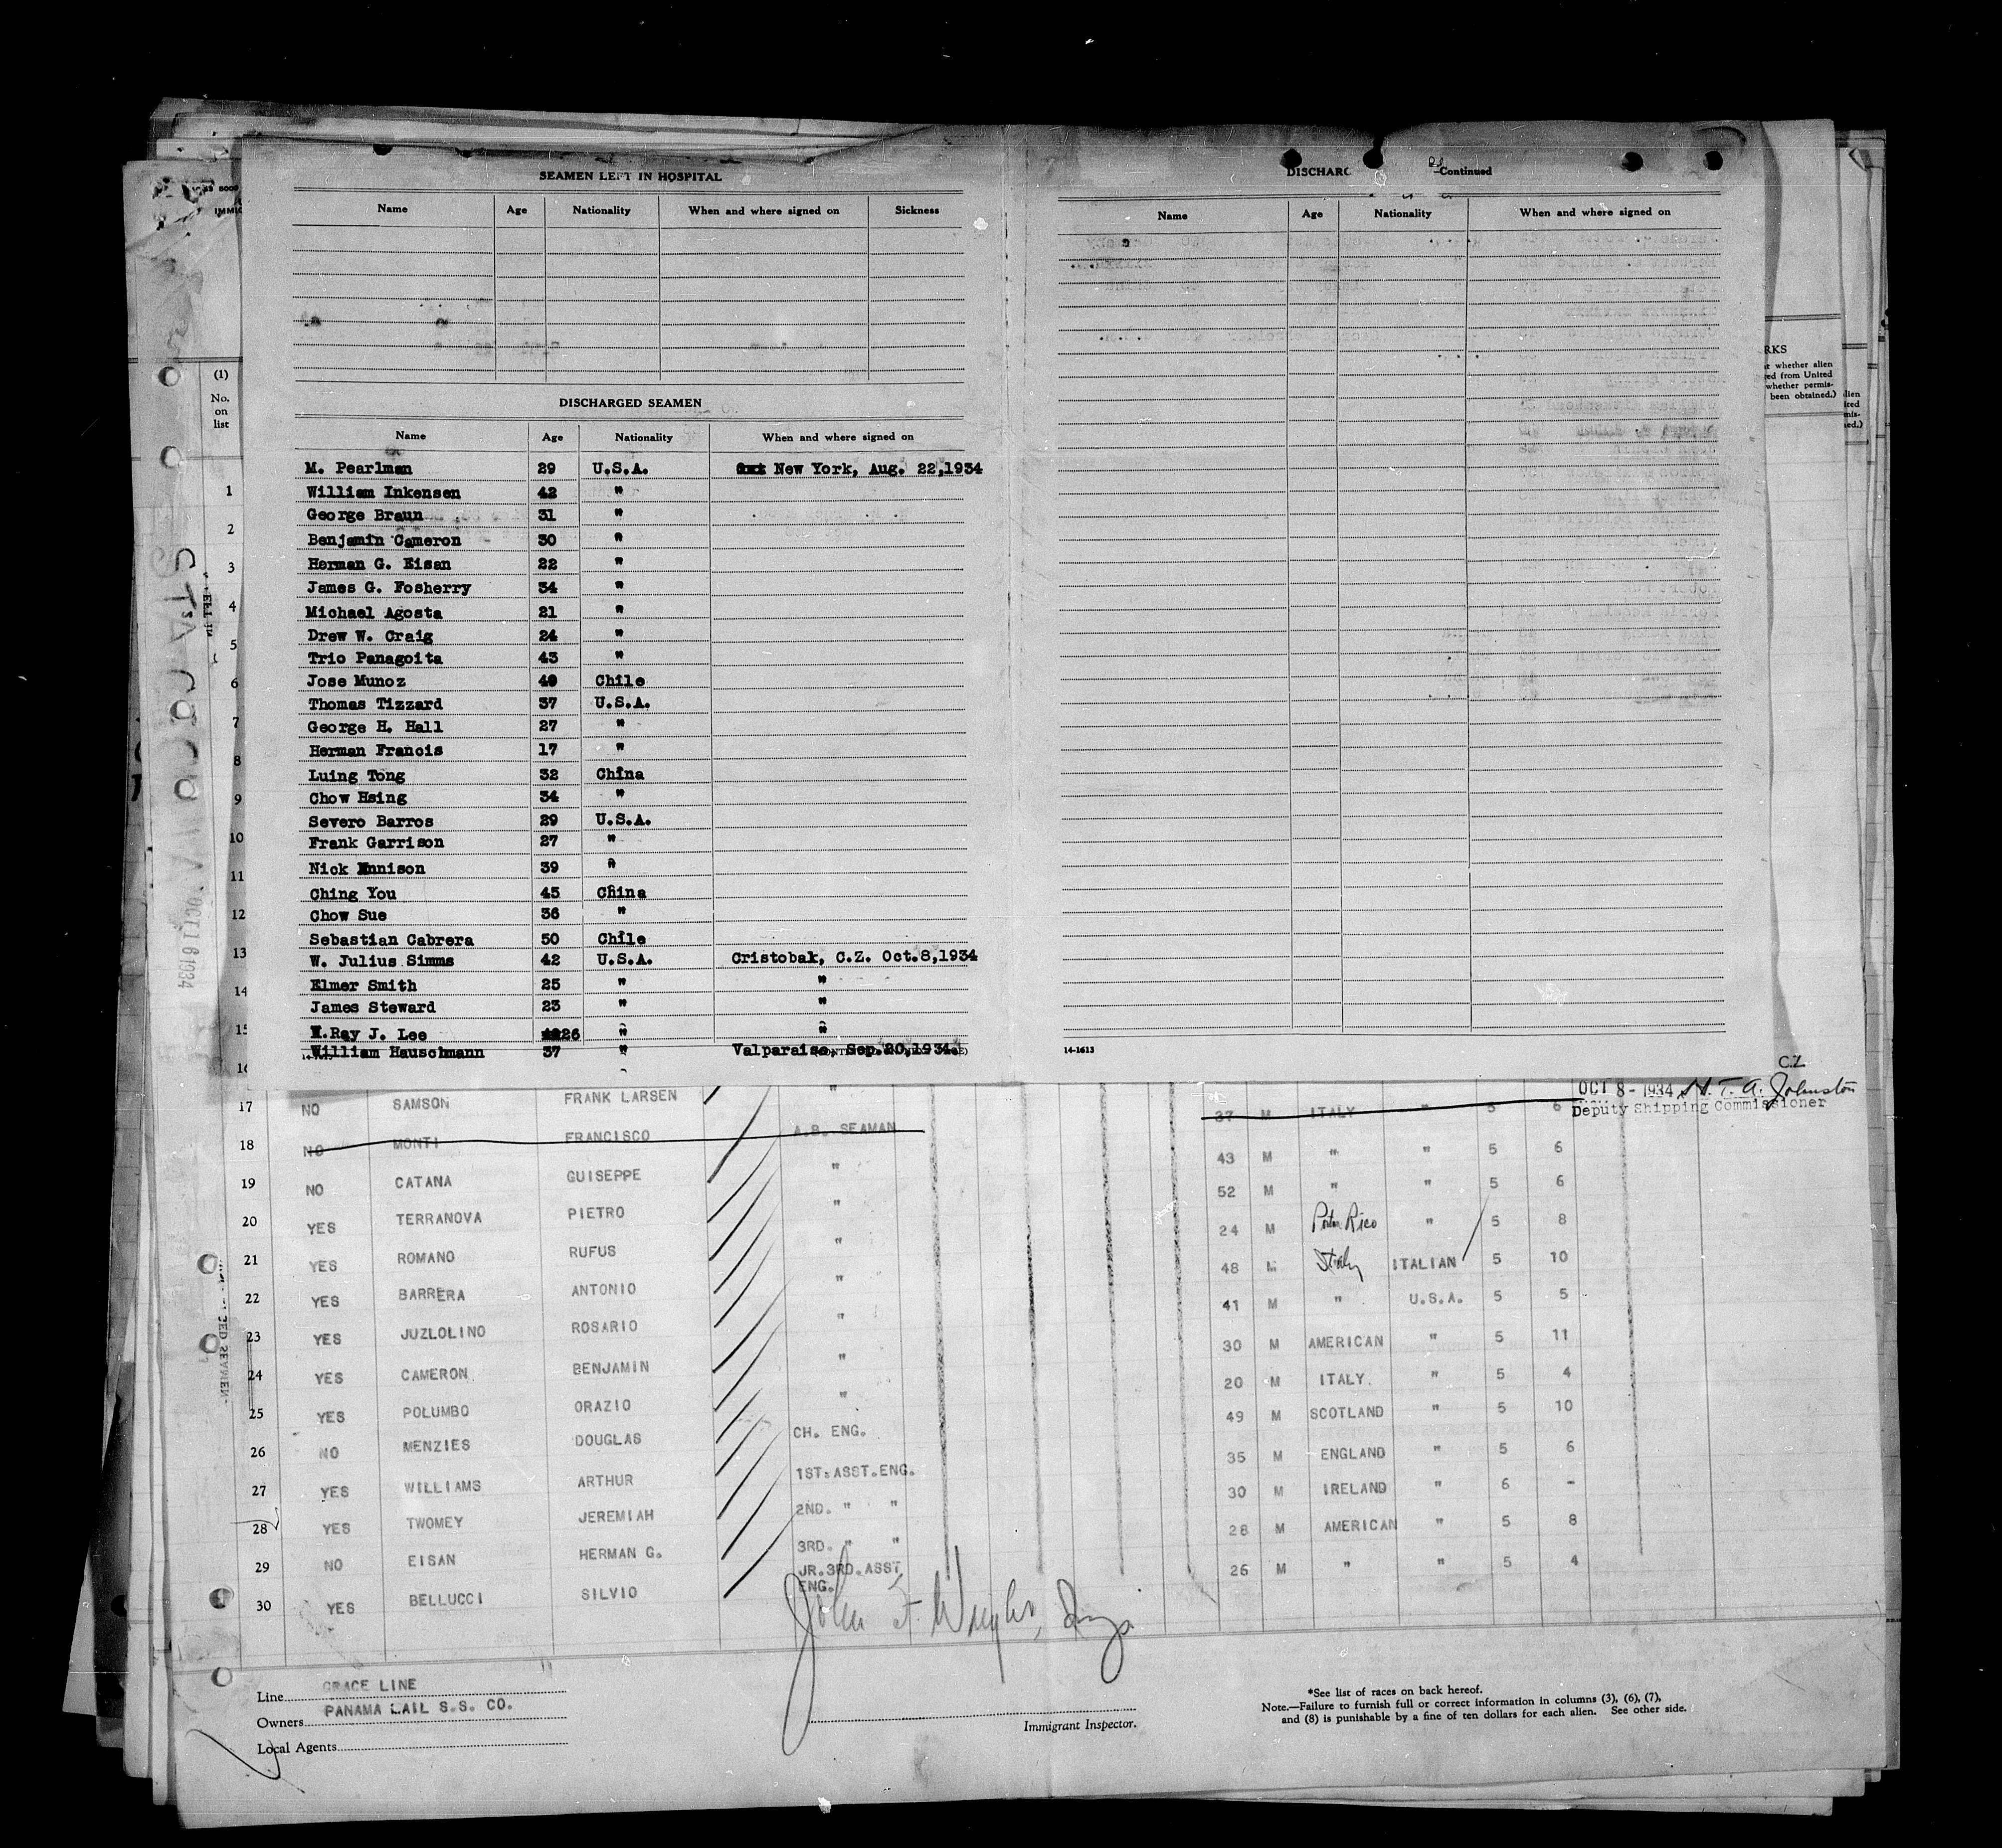 SEAMEN LEFT IN HOSPITAL
Name Age Nationality When and where signed on Sickness
DISCHARGED SEAMEN
Name Age Nationality When and where signed on
M. Pearlman 29 U.S.A. New York, Aug. 22,1934
William Inkensen 42 "
George Braun 31 "
Benjamin Cameron 30 "
Herman G. Eisan 22 "
James G. Fosherry 34 "
Michael Agosta 21 "
Drew W. Craig 24 "
Trio Panagoita 43 "
Jose Munoz 49 Chile
Thomas Tizzard 37 U.S.A.
George H. Hall 27 "
Herman Francis 17 "
Luing Tong 32 China
Chow Hsing 34 "
Severo Barros 29 U.S.A.
Frank Garrison 27 "
Nick Ennison 39 "
Ching You 45 China
Chow Sue 36 "
Sebastian Cabrera 50 Chile
W. Julius Simms 42 U.S.A. Cristobal, C.Z. Oct.8,1934
Elmer Smith 25 " "
James Steward 23 " "
Ray J. Lee 26 " "
William Hauschmann 37 " Valparaiso Sep.20,1934
DISCHARG Continued
Name Age Nationality When and where signed on
14-1613
IMMIG
(1)
No.
on
list
1
2
3
4
5
6
7
8
9
10
11
12
13
14
15
16
OCT 16 1934
RKS
whether alien
ed from United
whether permis-
been obtained.)
C.Z.
OCT 8-1934 H. T. A. Johnston
Deputy Shipping Commissioner
17 NO SAMSON FRANK LARSEN "
37 M ITALY " 5 6
18 NO MONTI FRANCISCO A.B. SEAMAN
43 M " " 5 6
19 NO CATANA GUISEPPE "
52 M " " 5 6
20 YES TERRANOVA PIETRO "
24 M Porto Rico " 5 8
21 YES ROMANO RUFUS "
48 M Italy ITALIAN 5 10
22 YES BARRERA ANTONIO "
41 M " U.S.A. 5 5
23 YES JUZLOLINO ROSARIO "
30 M AMERICAN " 5 11
24 YES CAMERON BENJAMIN "
20 M ITALY " 5 4
25 YES POLUMBO ORAZIO "
49 M SCOTLAND " 5 10
26 NO MENZIES DOUGLAS CH. ENG.
35 M ENGLAND " 5 6
27 YES WILLIAMS ARTHUR 1ST.ASST.ENG.
30 M IRELAND " 6 -
28 YES TWOMEY JEREMIAH 2ND. " "
28 M AMERICAN " 5 8
29 NO EISAN HERMAN G. 3RD. " "
26 M " " 5 4
30 YES BELLUCCI SILVIO JR.3RD.ASST
ENG.
Line GRACE LINE
Owners PANAMA LAIL S.S. CO.
Local Agents
Immigrant Inspector.
*See list of races on back hereof.
Note.—Failure to furnish full or correct information in columns (3), (6), (7),
and (8) is punishable by a fine of ten dollars for each alien. See other side.